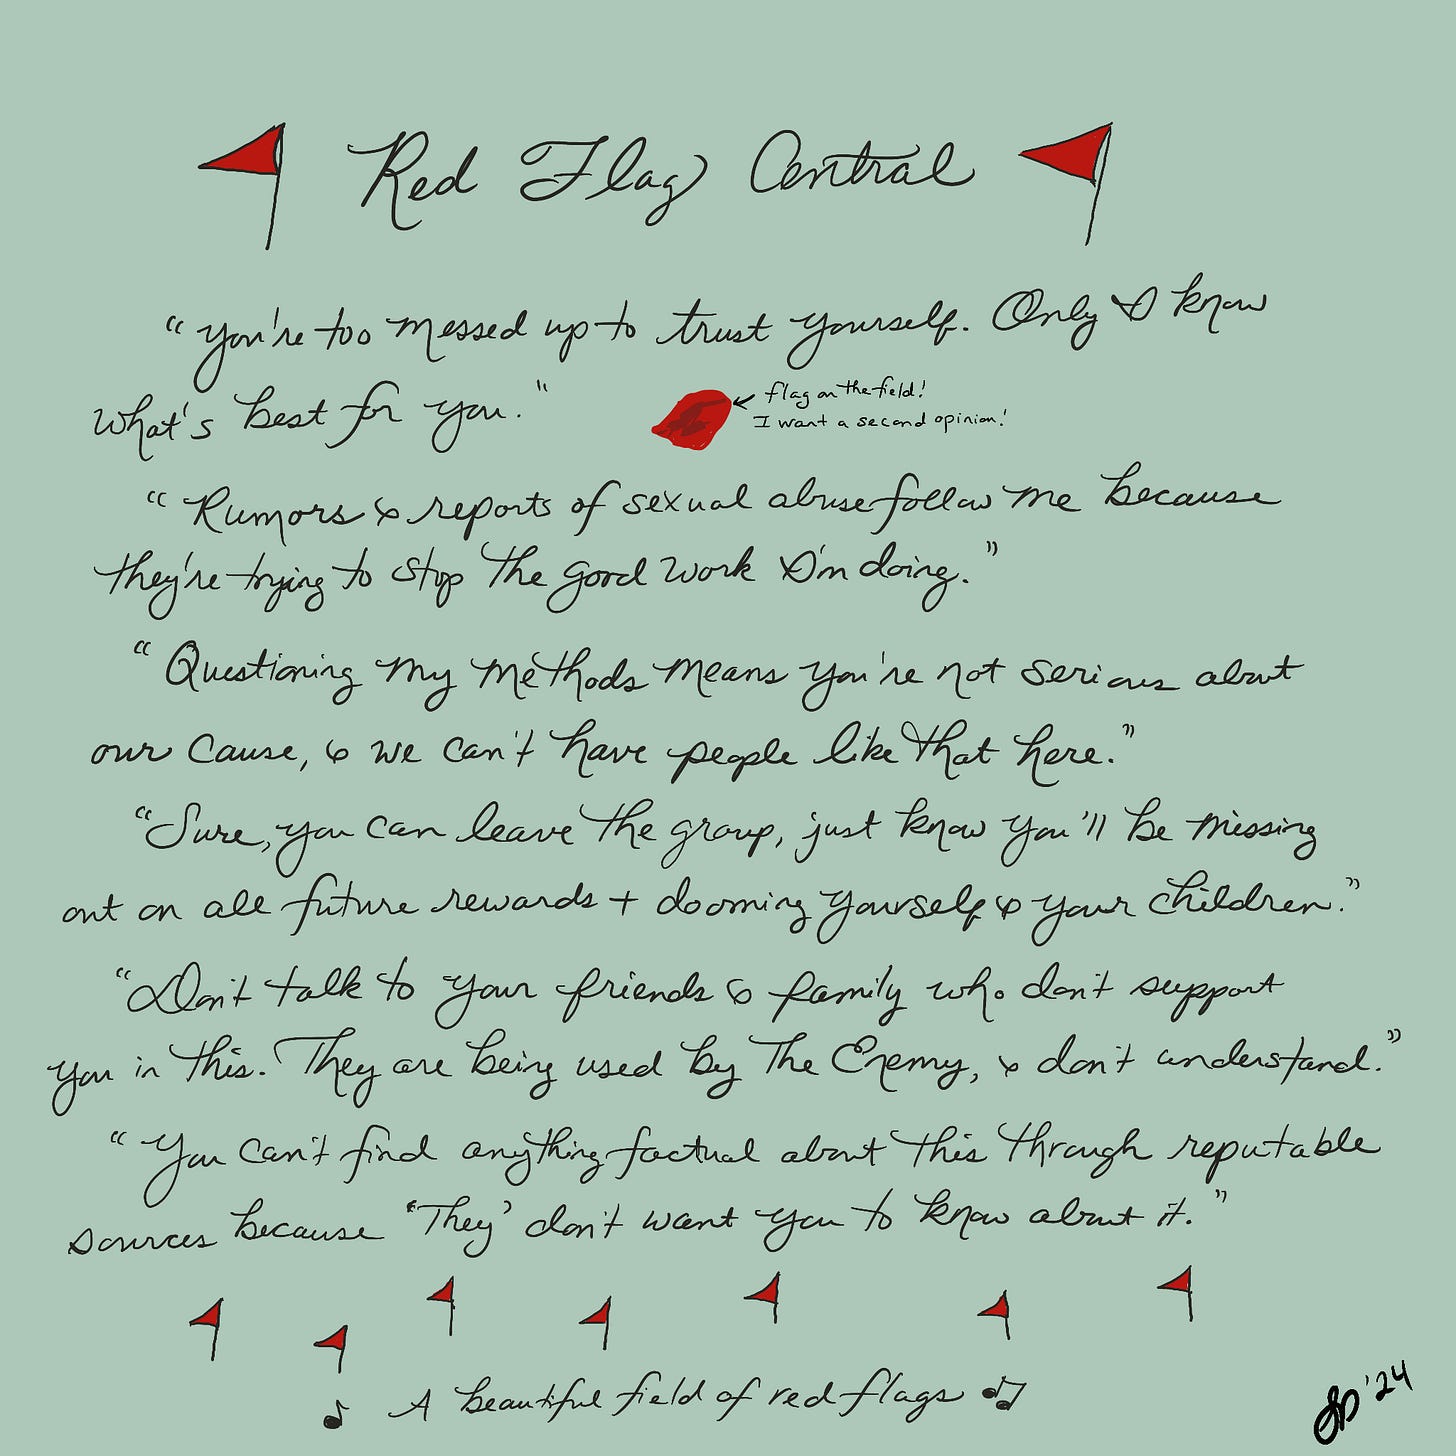 Red Flag Central
"You're too messed up to trust yourself. Only I know
what's best for you."
flag on the field!
I want a second opinion!
"Rumors & reports of sexual abuse follow me because
they're trying to stop the good work I'm doing."
"Questioning my methods means you're not serious about
our cause, & we can't have people like that here."
"Sure, you can leave the group, just know you'll be missing
out on all future rewards + dooming yourself & your children."
"Don't talk to your friends & family who don't support
you in this. They are being used by The Enemy, & don't understand."
"You can't find anything factual about this through reputable
sources because 'They' don't want you to know about it."
A beautiful field of red flags
'24